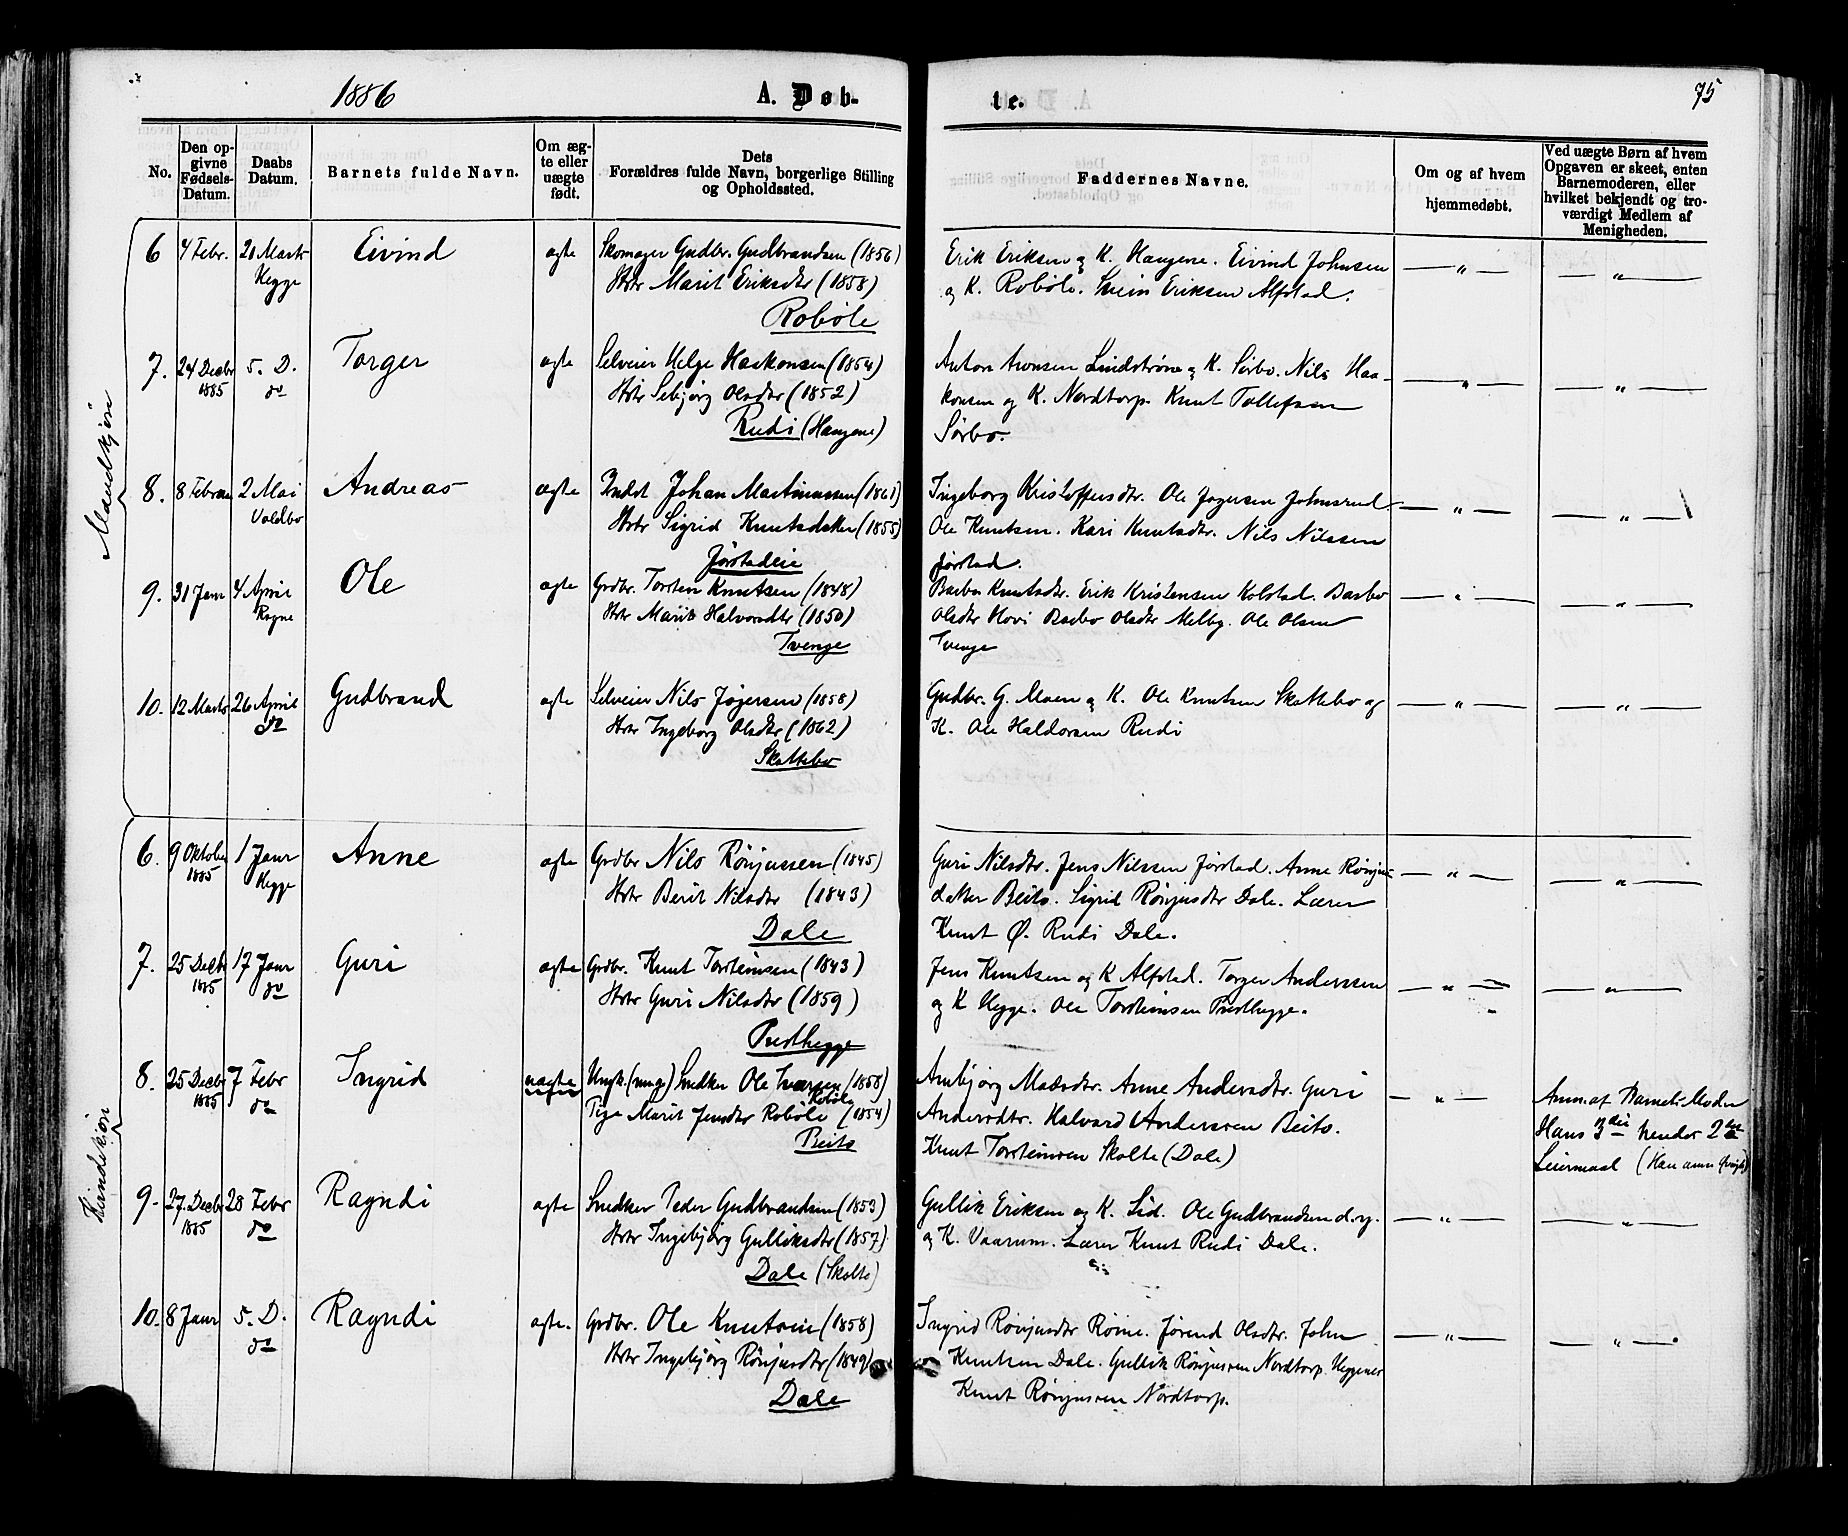 1886
A. Døb-
te.
75
No.
Den op-
givne
Fødsels-
Datum.
Daabs
Datum.
Barnets fulde Navn.
Om æg-
te eller
uægte
født.
Dets
Forældres fulde Navn, borgerlige Stilling
og Opholdssted.
Faddernes Navne.
Om og af hvem
hjemmedøbt.
Ved uægte Børn af hvem
Opgaven er skeet, enten
Barnemoderen, eller
hvilket bekjendt og tro-
værdigt Medlem af
Menigheden.
Mandkjön
6 4 Febr. 21 Marts Eivind ægte Skomager Gudbr. Gudbrandsen (1856) Erik Eriksen og K. Haugene. Eivind Johnsen — " — — " —
Hegge Hstr Marit Eriksdtr (1858) og K. Robøle. Svein Eriksen Alfstad.
Robøle
7. 24 Decbr 5. D. Torger ægte Selveier Helge Haakonsen (1854) Anton Aronsen Lindstrøm og K. Sørbo. Nils Haa- — " — — " —
1885 do Hstr Sebjørg Olsdtr (1852) konsen og K. Nordtorp. Knut Tollefsen
Rudi (Haugene) Sørbo.
8. 8 Februar 2 Mai Andreas ægte Indst Johan Martinussen (1861) Ingeborg Kristoffersdtr. Ole Jøgersen Johnsrud — " — — " —
Voldbo Hstr Sigrid Knutsdatter (1855) Ole Knutsen. Kari Knutsdtr. Nils Nilssen
Jørstadeie Jørstad.
9. 31 Janr 4 April Ole ægte Grdbr. Torsten Knutsen (1848) Barbo Knutsdtr. Erik Kristensen Kolstad. Barbo — " — — " —
Rogne Hstr Marit Halvorsdtr (1850) Olsdtr Hovi Barbo Olsdtr Melby. Ole Olsen
Tvenge Tvenge
10. 12 Marts 26 April Gudbrand ægte Selveier Nils Jøgersen (1858) Gudbr. G. Moen og K. Ole Knutsen Skattebo og — " — — " —
do Hstr Ingeborg Olsdtr (1862) K. Ole Haldorsen Rudi
Skattebo
Kvindekjön
6. 9 Oktober 1 Janr Anne ægte Grdbr Nils Rönjussen (1845) Guri Nilsdtr. Jens Nilssen Jørstad. Anne Rönjus- — " — — " —
1885 Hegge Hstr Berit Nilsdtr (1843) datter Beito. Sigrid Rönjusdtr Dale. Lærer
Dale Knut Ø. Rudi Dale.
7. 25 Decbr 17 Janr Guri ægte Grdbr. Knut Torsteinsen (1843) Jens Knutsen og K Alfstad. Torger Anderssen — " — — " —
1885 do Hstr Guri Nilsdtr (1859) og K Hegge. Ole Torsteinsen Præsthegge.
Præsthegge
8. 25 Decbr 7 Febr Ingrid uægte Ungk. (ung.) Snedker Ole Iversen (1858) Ambjørg Madsdtr. Anne Andersdtr. Guri — " — Anm. af Barnets Moder
1885 do Robøle
Pige Marit Jensdtr Robøle (1854) Andersdtr. Halvard Anderssen Beito. Hans 3die hendes 2det
Beito Knut Torsteinsen Skolte (Dale) Leiermaal
9. 27. Decbr 28 Febr Ragndi ægte Snedker Peder Gudbrandsen (1853) Gullik Eriksen og K. Lid. Ole Gudbrandsen d.y. — " — — " —
1885 do Hstr Ingebjørg Gulliksdtr (1857) og K. Vaarum. Lærer Knut Rudi Dale.
Dale (Skolte)
10. 8 Janr 5. D. Ragndi ægte. Grdbr. Ole Knutsen (1858) Ingrid Rönjusdtr Røine. Jørend Olsdtr. John — " — — " —
do Hstr Ingebjørg Rönjusdtr (1849) Knutsen Dale. Gullik Rönjussen Nordtorp Heggenes
Dale Knut Rönjussen Nordtorp.